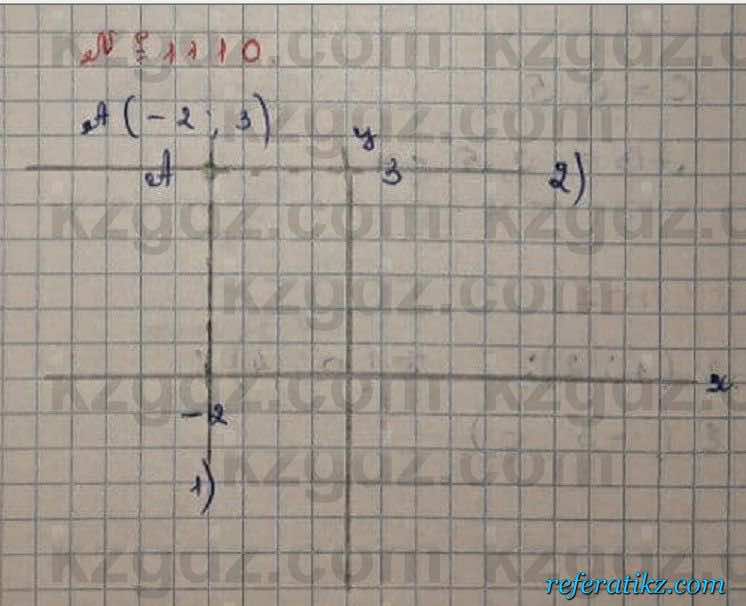 № 1110
A(-2; 3)
y
A
3
2)
x
-2
1)
kzgdz.com
referatikz.com